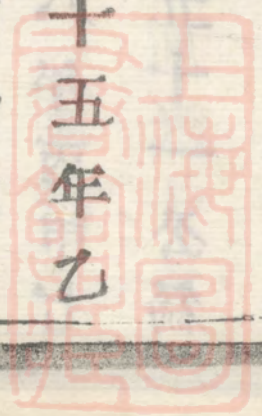 十五年乙
上海圖
書館藏